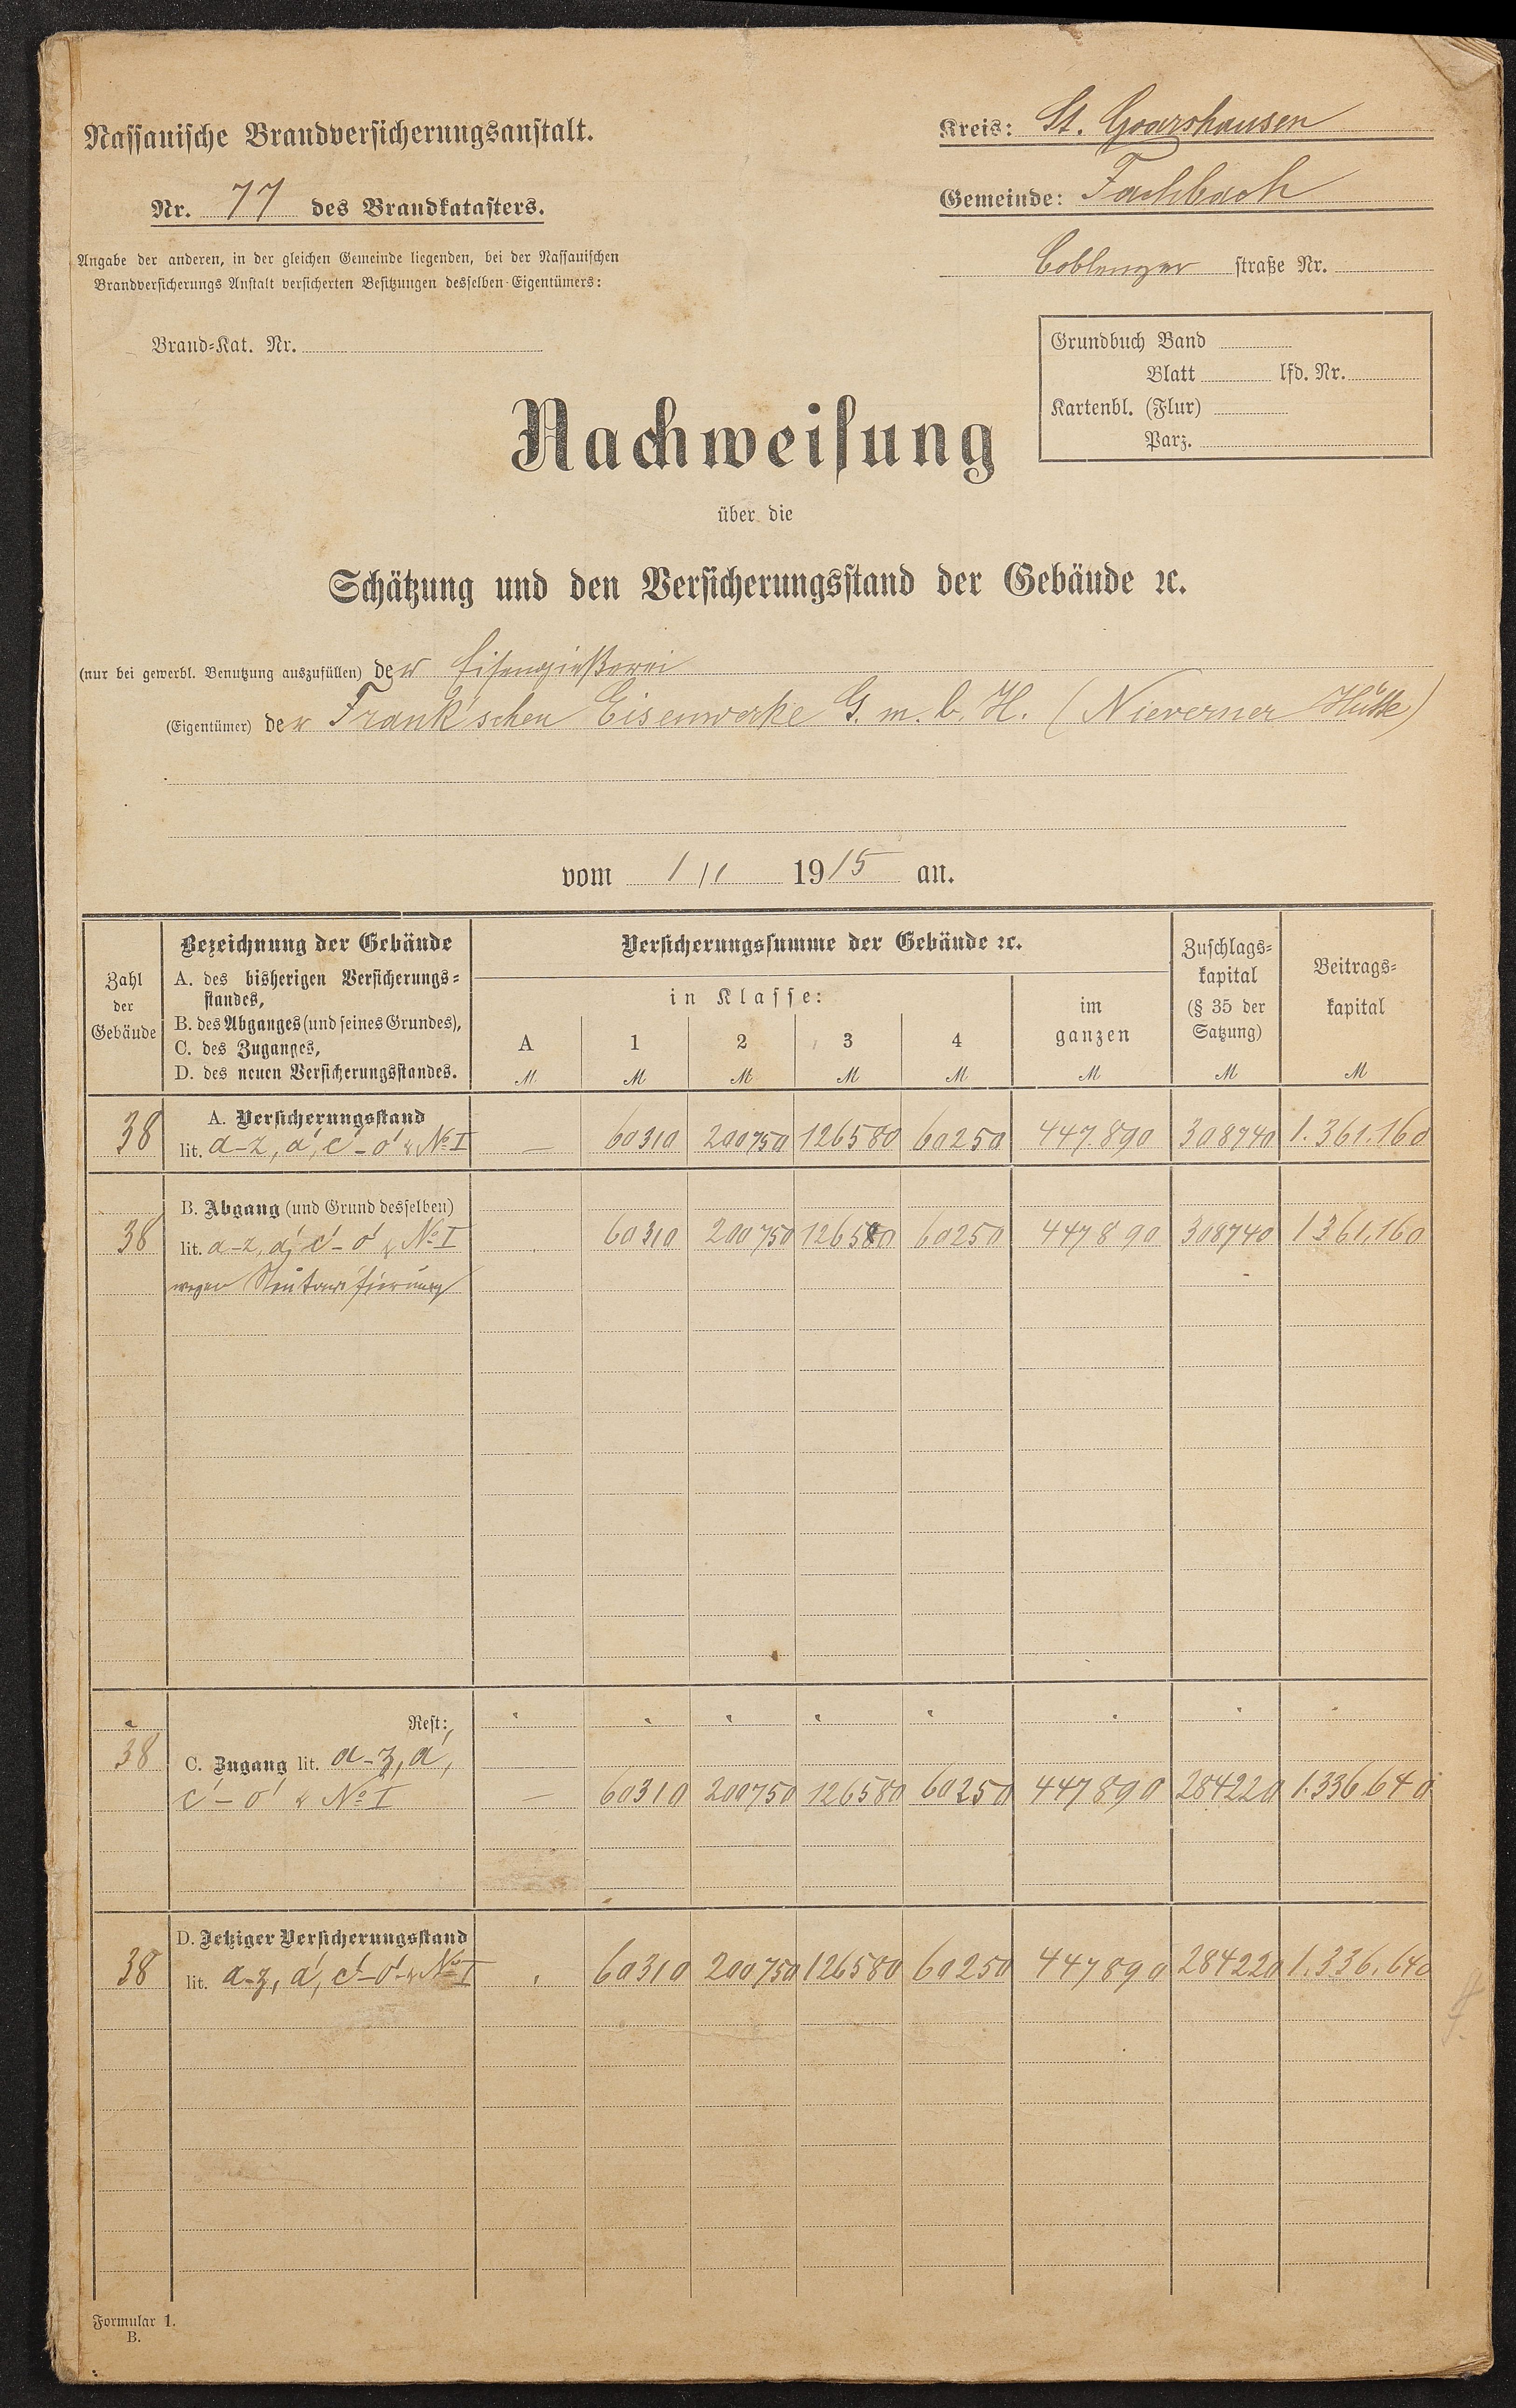 Nassauische Brandversicherungsanstalt.
Nr. 77 des Brandkatasters.
Angabe der anderen, in der gleichen Gemeinde liegenden, bei der Nassauischen
Brandversicherungs Anstalt versicherten Besitzungen desselben Eigentümers:
Brand-Kat. Nr.
Kreis: St. Goarshausen
Gemeinde: Fachbach
Coblenzer straße Nr.
Grundbuch Band
Blatt lfd. Nr.
Kartenbl. (Flur)
Parz.
Nachweisung
über die
Schätzung und den Versicherungsstand der Gebäude ꝛc.
(nur bei gewerbl. Benutzung auszufüllen) der Eisengießerei
(Eigentümer) der Frank'schen Eisenwerke G. m. b. H. (Nieverner Hütte)
vom 1/1 1915 an.
Zahl der Gebäude
Bezeichnung der Gebäude
A. des bisherigen Versicherungs-
standes,
B. des Abganges (und seines Grundes),
C. des Zuganges,
D. des neuen Versicherungsstandes.
Versicherungssumme der Gebäude ꝛc.
in Klasse:
A 1 2 3 4
M M M M M
im ganzen
M
Zuschlags-
kapital
(§ 35 der
Satzung)
M
Beitrags-
kapital
M
A. Versicherungsstand
38 lit. a-z, a', c'-o' & No I — 60310 200750 126580 60250 447.890 308740 1.361.160
B. Abgang (und Grund desselben)
38 lit. a-z, a', c'-o' & No I 60310 200750 126580 60250 447890 308740 1361.160
wegen Neutarifierung
Rest:
38 C. Zugang lit. a-z, a',
c'-o' & No I — 60310 200750 126580 60250 447890 284220 1.336.640
D. Jetziger Versicherungsstand
38 lit. a-z, a', c'-o' & No I 60310 200750 126580 60250 447890 284220 1.336.640
Formular 1.
B.